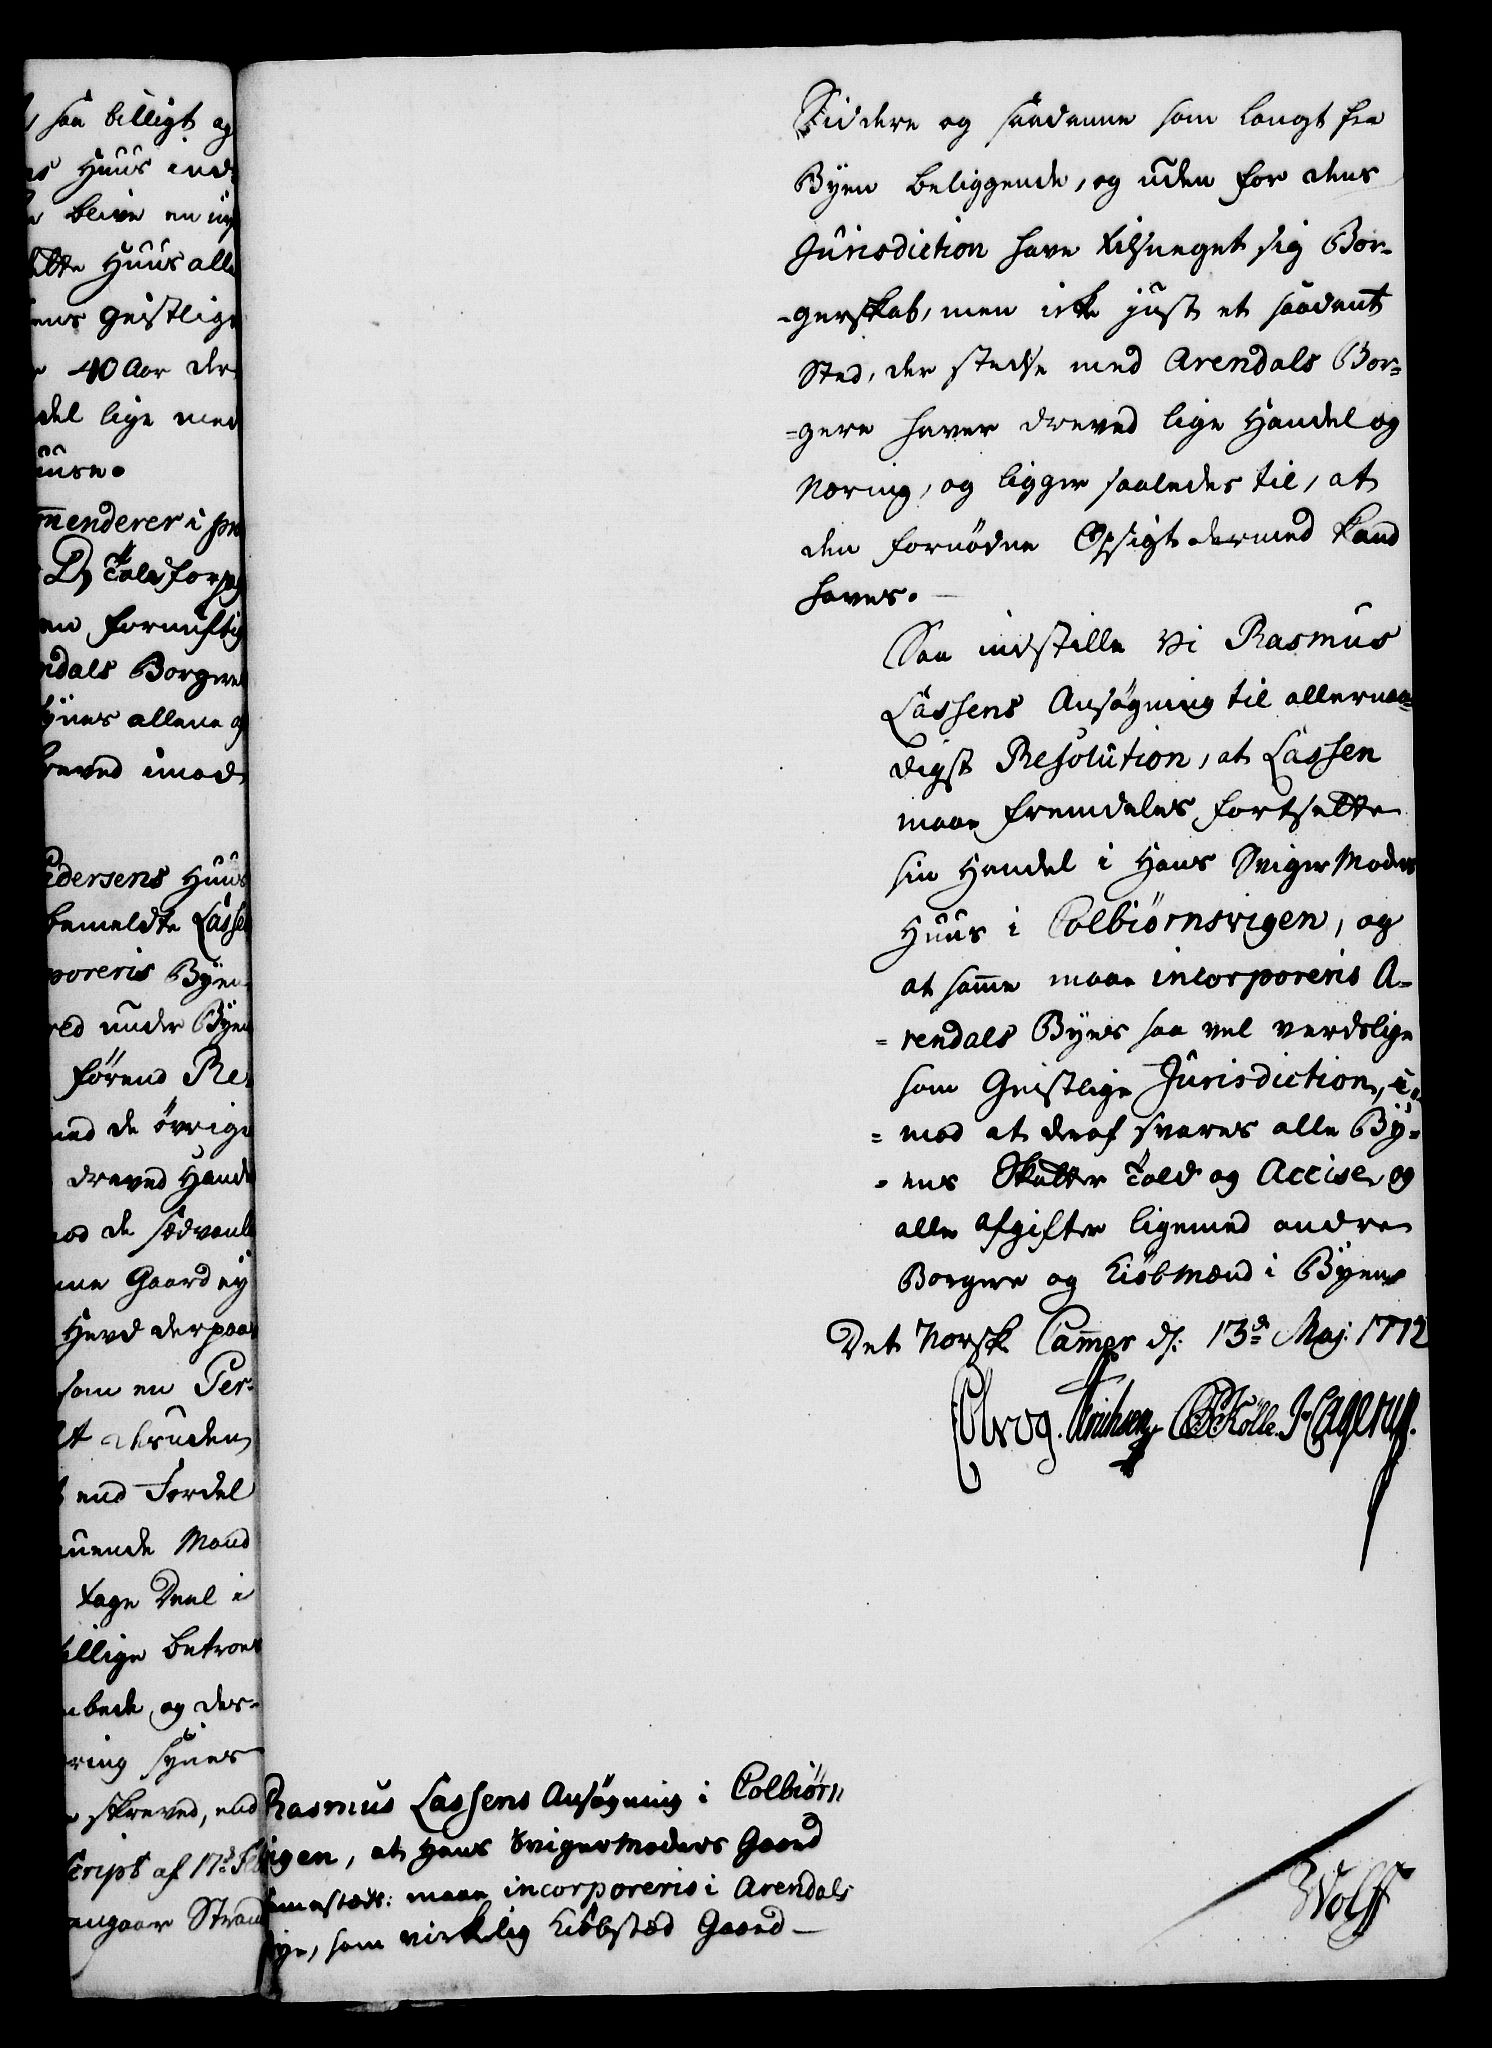 saa billigt og
Huus ind
blive en ny
Huus alle
ens Geistlige
40 Aar der
del lige med
uuse.
menderer i
D. Told
en fornuftig
ndals Borgere
ynes allene og
imod
edersens Huus
bemeldte Lassen
poreris Byen
under Byen
førend Re-
med de övrige
dreved Handel
mod de sædvanl
Gaard ey
Hevd derpaa
som en Per-
desuden
end Fordel
ende Mand
tage Deel i
illige betroes
bede og des-
ring synes
skreved, end
cript af 17de Feb
Strand
Siddere og saadanne som langt fra
Byen beliggende, og uden for dens
Jurisdiction have tilsneget sig Bor-
-gerskab, men icke just et saadant
Sted, der stedse med Arendals Bor-
-gere haver dreved lige Handel og
Næring, og ligger saaledes til, at
den fornødne Opsigt dermed kand
haves.
Saa indstille Vi Rasmus
Lassens Ansøgning til allernaa-
digst Resolution, at Lassen
maae fremdeles fortsette
sin Handel i Hans SvigerModers
Huus i Colbiørnsvigen, og
at samme maae incorporeris A-
-rendals Byes saa vel verdslige
som Geistlige Jurisdiction, i-
-mod at deraf svares alle By-
-ens Skatter Told og Accise og
alle afgifter ligemed andre
Borgere og Kiöbmænd i Byen
Det Norske Cammer d: 13de Maj. 1772
Erichsen CKölle. J. Lagerup.
Rasmus Lassens Ansøgning i Colbiørn
igen, at Hans SvigerModers Gaard
sammestæds: maae incorporeris i Arendals
Bye, som virkelig Kiöbstæd Gaard
Wolff